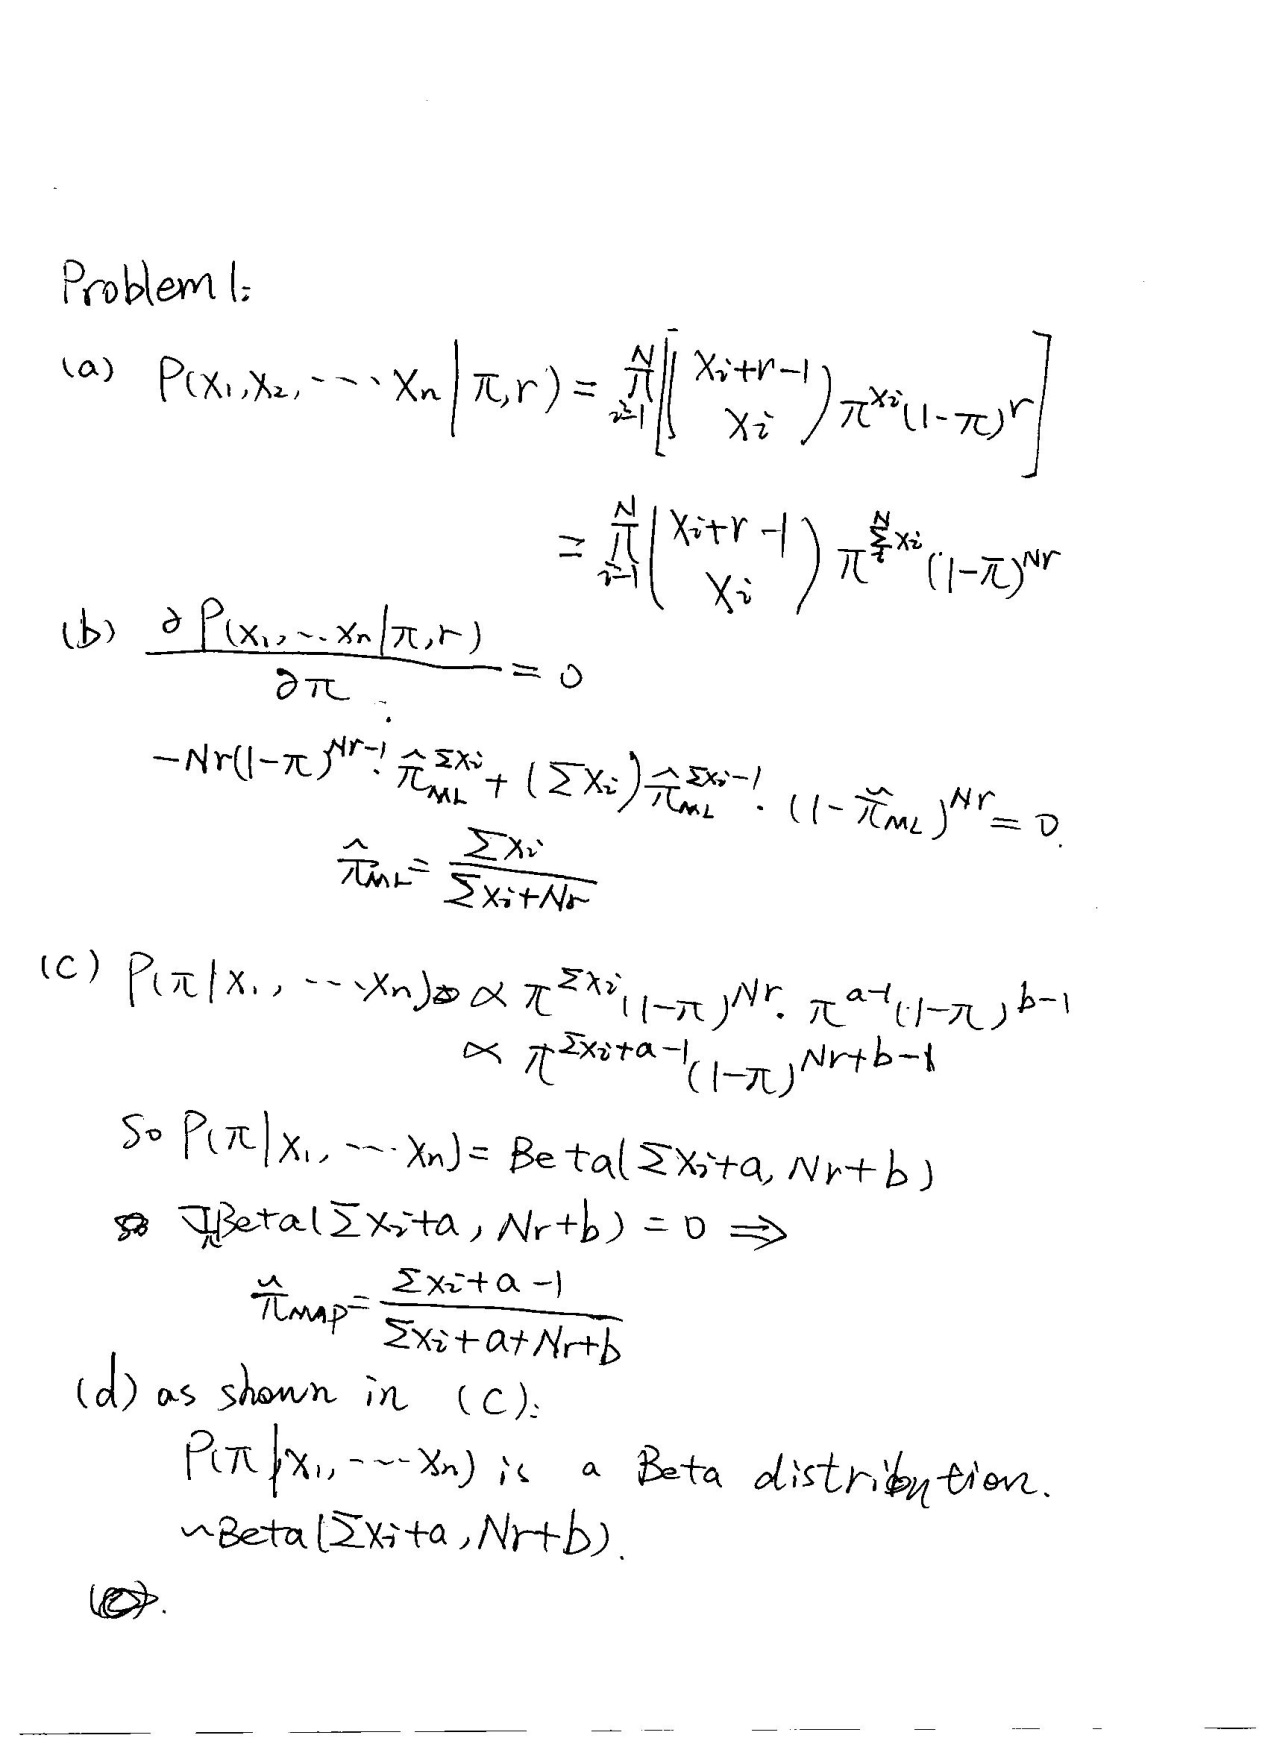 Problem 1:
(a) P(X₁,X₂, ---- Xₙ | π,r) = ∏_{i=1}^{N} [ (Xᵢ+r-1 choose Xᵢ) π^{Xᵢ} (1-π)^r ]
= ∏_{i=1}^{N} (Xᵢ+r-1 choose Xᵢ) π^{∑_i^N Xᵢ} (1-π)^{Nr}
(b) ∂P(X₁, --- Xₙ|π,r) / ∂π = 0
-Nr(1-π)^{Nr-1} · π̂_ML^{∑Xᵢ} + (∑Xᵢ) π̂_ML^{∑Xᵢ-1} · (1-π̂_ML)^{Nr} = 0.
π̂_ML = ∑Xᵢ / (∑Xᵢ+Nr)
(c) P(π|X₁, ---- Xₙ) ∝ π^{∑Xᵢ} (1-π)^{Nr} · π^{a-1} (1-π)^{b-1}
∝ π^{∑Xᵢ+a-1} (1-π)^{Nr+b-1}
So P(π|X₁, ---- Xₙ) = Beta(∑Xᵢ+a, Nr+b)
∇_π Beta(∑Xᵢ+a, Nr+b) = 0 ⇒
π̂_MAP = (∑Xᵢ+a-1) / (∑Xᵢ+a+Nr+b)
(d) as shown in (c):
P(π|X₁, ---- Xₙ) is a Beta distribution.
~Beta(∑Xᵢ+a, Nr+b).